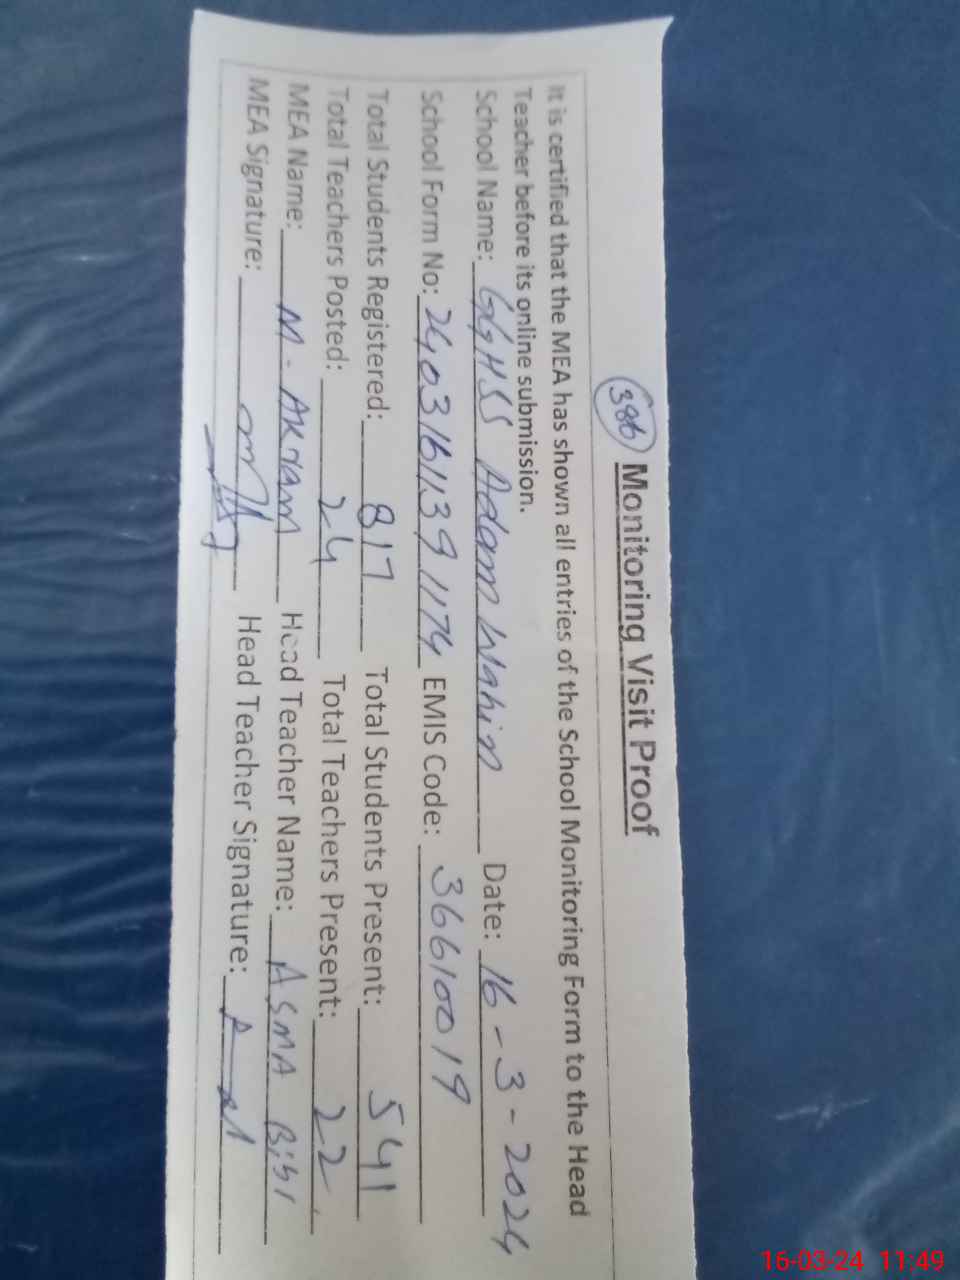 386 Monitoring Visit Proof
It is certified that the MEA has shown all entries of the School Monitoring Form to the Head
Teacher before its online submission.
School Name: GGHSS Adam Wahin Date: 16-3-2024
School Form No: 24031611391174 EMIS Code: 36610019
Total Students Registered: 817 Total Students Present: 541
Total Teachers Posted: 24 Total Teachers Present: 22
MEA Name: M. Akram Head Teacher Name: ASMA Bibi
MEA Signature: Head Teacher Signature:
16-03-24 11:49